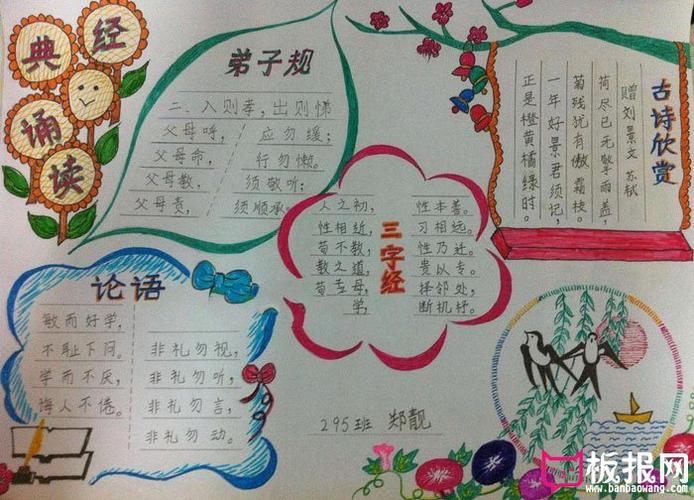 经典诵读
弟子规
二、入则孝，出则悌
父母呼， 应勿缓；
父母命， 行勿懒。
父母教， 须敬听；
父母责， 须顺承。
古诗欣赏
赠刘景文 苏轼
荷尽已无擎雨盖，
菊残犹有傲霜枝。
一年好景君须记，
正是橙黄橘绿时。
三字经
人之初， 性本善。
性相近， 习相远。
苟不教， 性乃迁。
教之道， 贵以专。
苟孟母， 择邻处，
学， 断机杼。
论语
敏而好学，
不耻下问。
学而不厌，
诲人不倦。
非礼勿视，
非礼勿听，
非礼勿言，
非礼勿动。
295班 郑靓
板报网
www.banbaowang.com